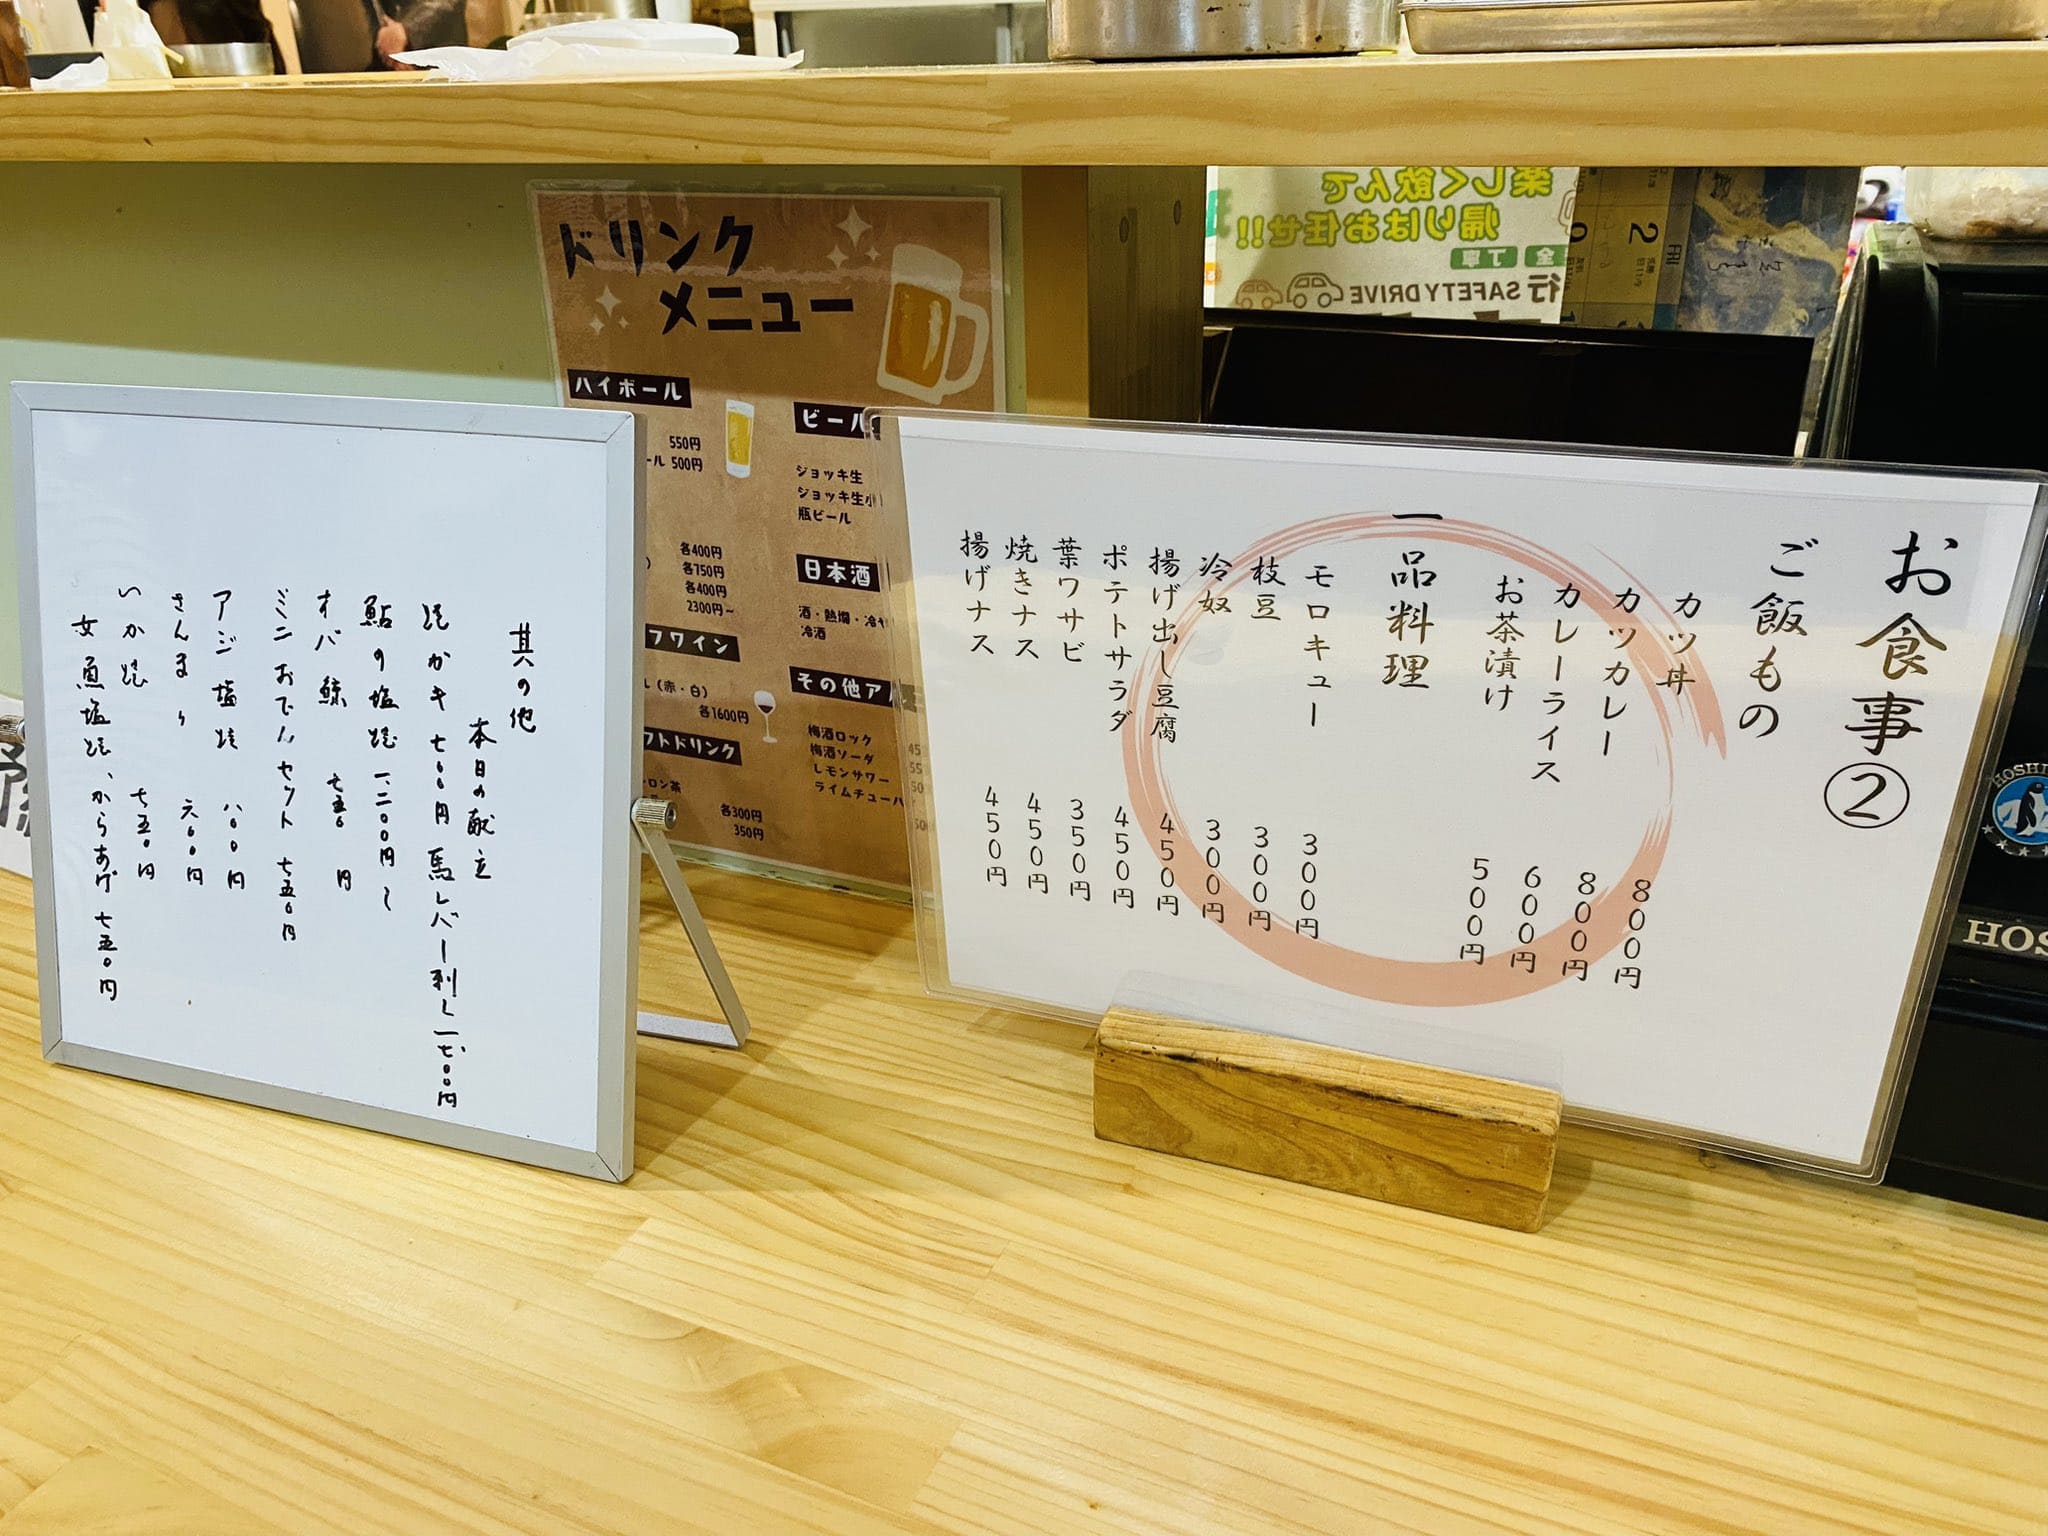 其の他
本日の献立
焼カキ 七〇〇円 馬レバー刺し 一七〇〇円
鮎の塩焼 一二〇〇円〜
オバ鯨 七五〇円
ミニおでんセット 七五〇円
アジ塩焼 八〇〇円
さんま 六〇〇円
いか焼 七五〇円
女魚塩焼、からあげ 七五〇円
ドリンク
メニュー
ハイボール
550円
ール 500円
各400円
各750円
各400円
2300円～
ワイン
(赤・白)
各1600円
フトドリンク
ーロン茶
各300円
350円
ビール
ジョッキ生
ジョッキ生小
瓶ビール
日本酒
酒・熱燗・冷や
冷酒
その他ア
梅酒ロック
梅酒ソーダ
レモンサワー
ライムチューハ
楽しく飲んで
帰りはお任せ!!
SAFETY DRIVE
2
FRI
お食事②
ご飯もの
カツ丼 800円
カツカレー 800円
カレーライス 600円
お茶漬け 500円
一品料理
モロキュー 300円
枝豆 300円
冷奴 300円
揚げ出し豆腐 450円
ポテトサラダ 450円
葉ワサビ 350円
焼きナス 450円
揚げナス 450円
HOSHI
HOS